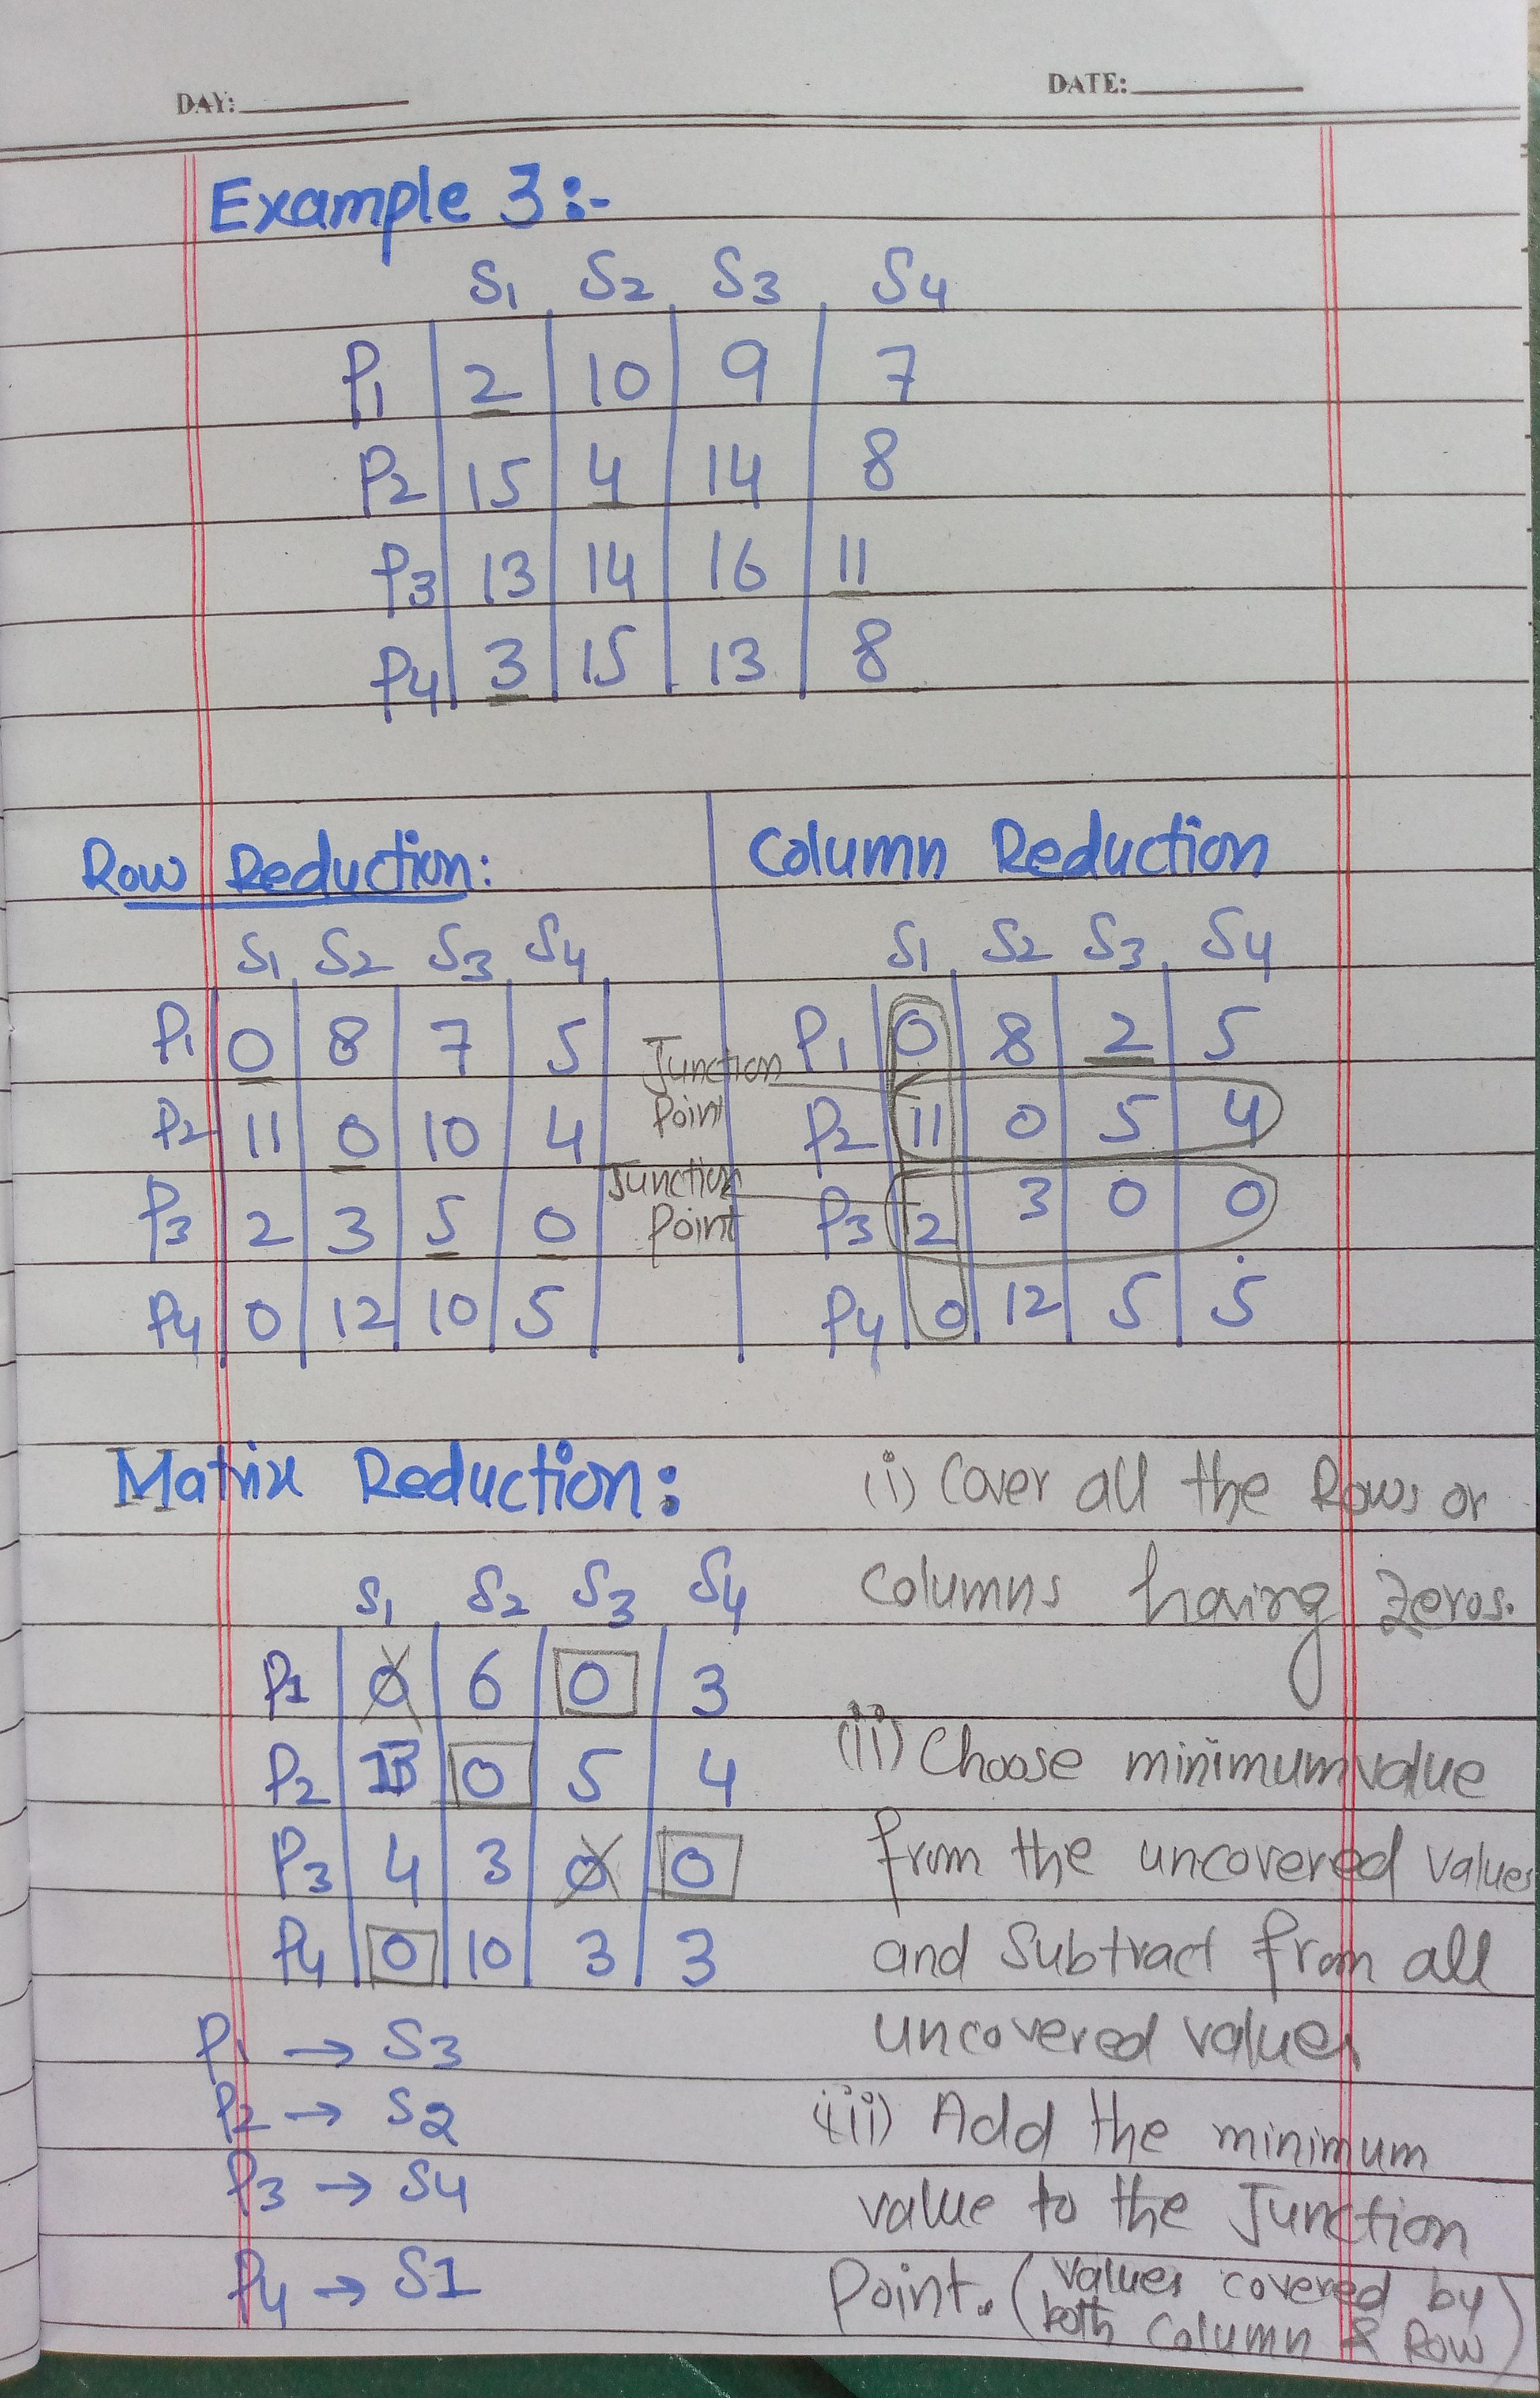 DAY: DATE:
Example 3:-
S1 S2 S3 S4
P1 2 10 9 7
P2 15 4 14 8
P3 13 14 16 11
P4 3 15 13 8
Row Reduction:
S1 S2 S3 S4
P1 0 8 7 5
P2 11 0 10 4
P3 2 3 5 0
P4 0 12 10 5
Column Reduction
S1 S2 S3 S4
Junction
Point
Junction
Point
P1 0 8 2 5
P2 11 0 5 4
P3 2 3 0 0
P4 0 12 5 5
Matrix Reduction:
S1 S2 S3 S4
P1 0 6 0 3
P2 13 0 5 4
P3 4 3 0 0
P4 0 10 3 3
P1 → S3
P2 → S2
P3 → S4
P4 → S1
(i) Cover all the Rows or
Columns having zeros.
(ii) Choose minimum value
from the uncovered values
and Subtract from all
uncovered values
(iii) Add the minimum
value to the Junction
Point. (values covered by
both Column & Row)